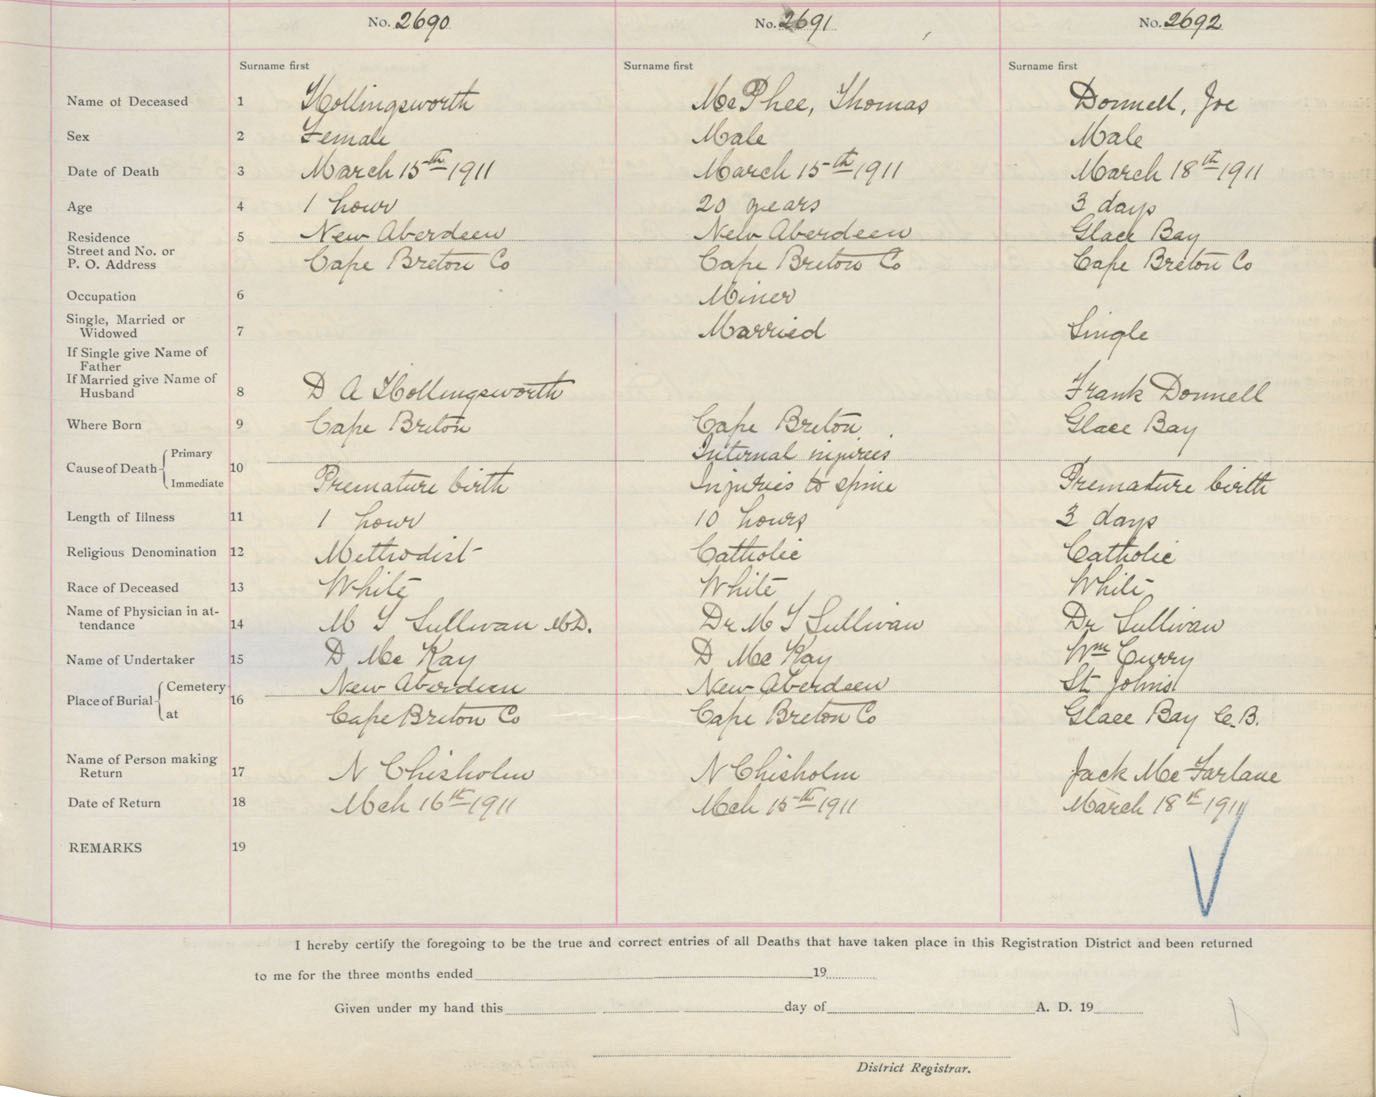 No. 2690 No. 2691 No. 2692
Surname first Surname first Surname first
Name of Deceased 1 Hollingsworth McPhee, Thomas Donnell, Joe
Sex 2 Female Male Male
Date of Death 3 March 15th 1911 March 15th 1911 March 18th 1911
Age 4 1 hour 20 years 3 days
Residence 5 New Aberdeen New Aberdeen Glace Bay
Street and No. or
P. O. Address Cape Breton Co Cape Breton Co Cape Breton Co
Occupation 6 Miner
Single, Married or
Widowed 7 Married Single
If Single give Name of
Father
If Married give Name of
Husband 8 D A Hollingsworth Frank Donnell
Where Born 9 Cape Breton Cape Breton Glace Bay
Primary Internal injuries
Cause of Death 10
Immediate Premature birth Injuries to spine Premature birth
Length of Illness 11 1 hour 10 hours 3 days
Religious Denomination 12 Methodist Catholic Catholic
Race of Deceased 13 White White White
Name of Physician in at-
tendance 14 M T Sullivan M.D. Dr M T Sullivan Dr Sullivan
Name of Undertaker 15 D McKay D McKay Wm Curry
Cemetery New Aberdeen New Aberdeen St Johns
Place of Burial 16
at Cape Breton Co Cape Breton Co Glace Bay C.B.
Name of Person making
Return 17 N Chisholm N Chisholm Jack McFarlane
Date of Return 18 Mch 16th 1911 Mch 15th 1911 March 18th 1911
REMARKS 19
I hereby certify the foregoing to be the true and correct entries of all Deaths that have taken place in this Registration District and been returned
to me for the three months ended 19
Given under my hand this day of A. D. 19
District Registrar.